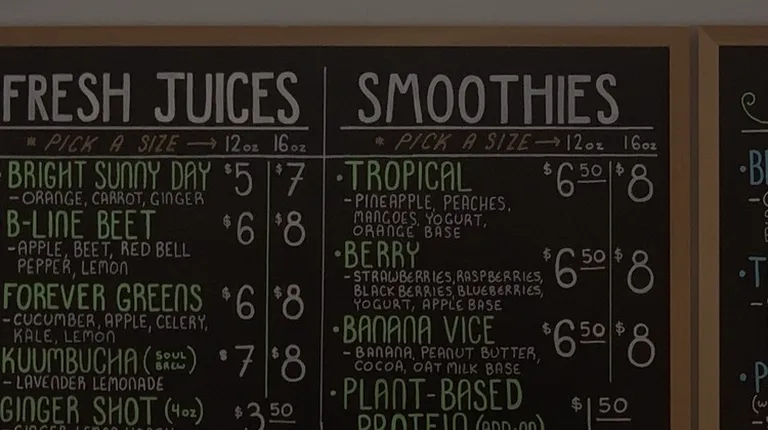 FRESH JUICES
* PICK A SIZE → 12oz 16oz
• BRIGHT SUNNY DAY $5 $7
- ORANGE, CARROT, GINGER
B-LINE BEET $6 $8
- APPLE, BEET, RED BELL
PEPPER, LEMON
FOREVER GREENS $6 $8
- CUCUMBER, APPLE, CELERY,
KALE, LEMON
KUUMBUCHA (SOUL BREW) $7 $8
- LAVENDER LEMONADE
GINGER SHOT (4oz) $3.50
SMOOTHIES
* PICK A SIZE → 12oz 16oz
• TROPICAL $6.50 $8
- PINEAPPLE, PEACHES,
MANGOES, YOGURT,
ORANGE BASE
• BERRY $6.50 $8
- STRAWBERRIES, RASPBERRIES,
BLACKBERRIES, BLUEBERRIES,
YOGURT, APPLE BASE
• BANANA VICE $6.50 $8
- BANANA, PEANUT BUTTER,
COCOA, OAT MILK BASE
• PLANT-BASED $1.50
PROTEIN (ADD-ON)